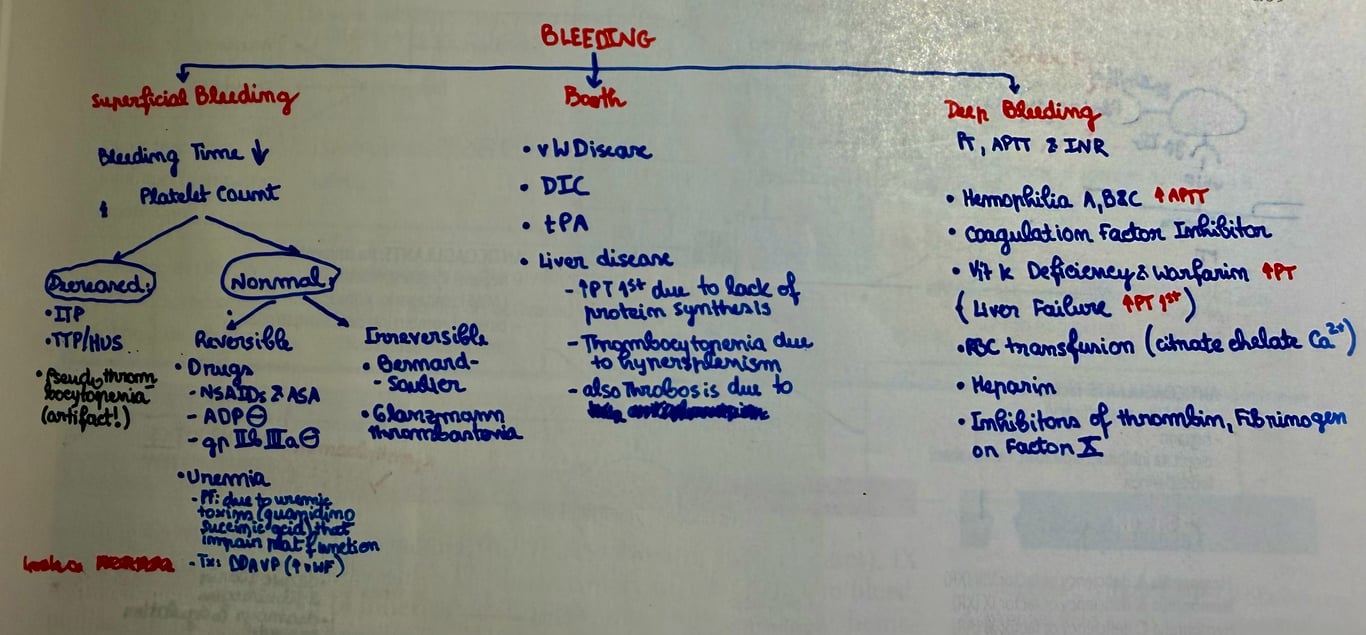 BLEEDING
Superficial Bleeding
Bleeding Time ↓
↑ Platelet Count
Decreased:
• ITP
• TTP/HUS
• Pseudothrom
bocytopenia
(artifact!)
Normal:
Reversible
• Drugs
- NSAIDs & ASA
- ADP ⊖
- gp IIb IIIa ⊖
• Uremia
- PF: due to uremic
toxins (guanidino
succinic acid) that
impair plat function
- Tx: DDAVP (↑ vWF)
Irreversible
• Bernard-
- Soulier
• Glanzmann
thrombastenia
Booth
• vW Disease
• DIC
• tPA
• Liver disease
- ↑PT 1st due to lack of
protein synthesis
- Thrombocytopenia due
to hypersplenism
- also Throbosis due to
Deep Bleeding
PT, APTT & INR
• Hemophilia A, B & C ↑ APTT
• Coagulation Factor Inhibitor
• Vit K Deficiency & Warfarin ↑PT
( Liver Failure ↑PT 1st )
• RBC transfusion (citrate chelate Ca2+)
• Heparin
• Inhibitors of thrombin, Fibrinogen
or Factor X